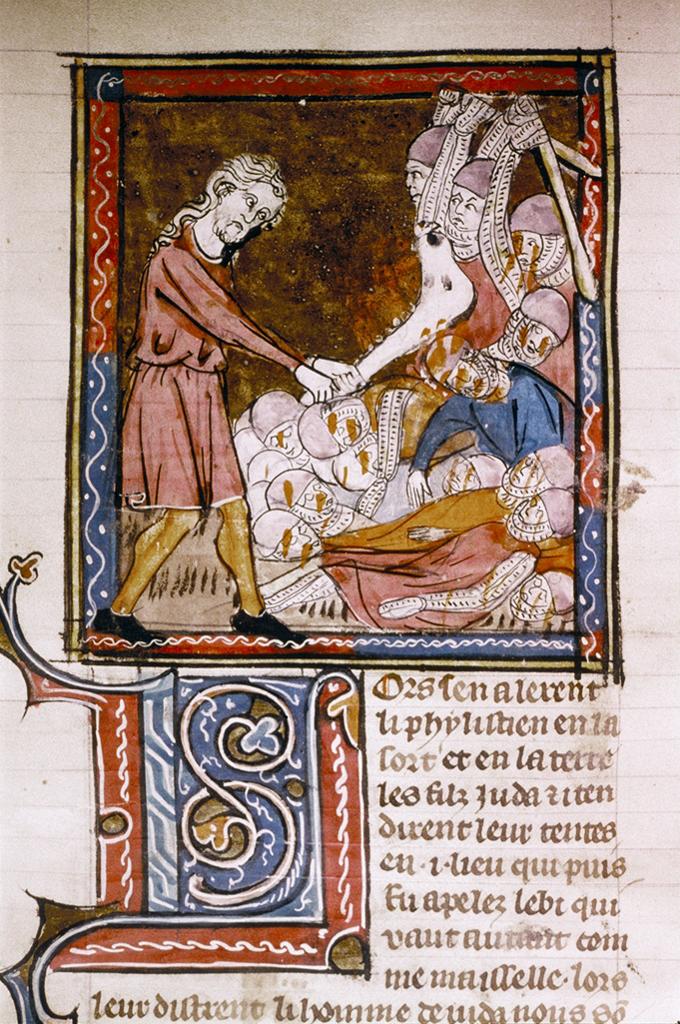 Lors sen alerent
li phylistien en la
sort et en la terre
les filz Juda ⁊ iten
dirent leur tentes
en ·i· lieu qui puis
fu apelez lebi qui
vaut autant com
me maisselle· lors
leur distrent li homme de iuda nous so